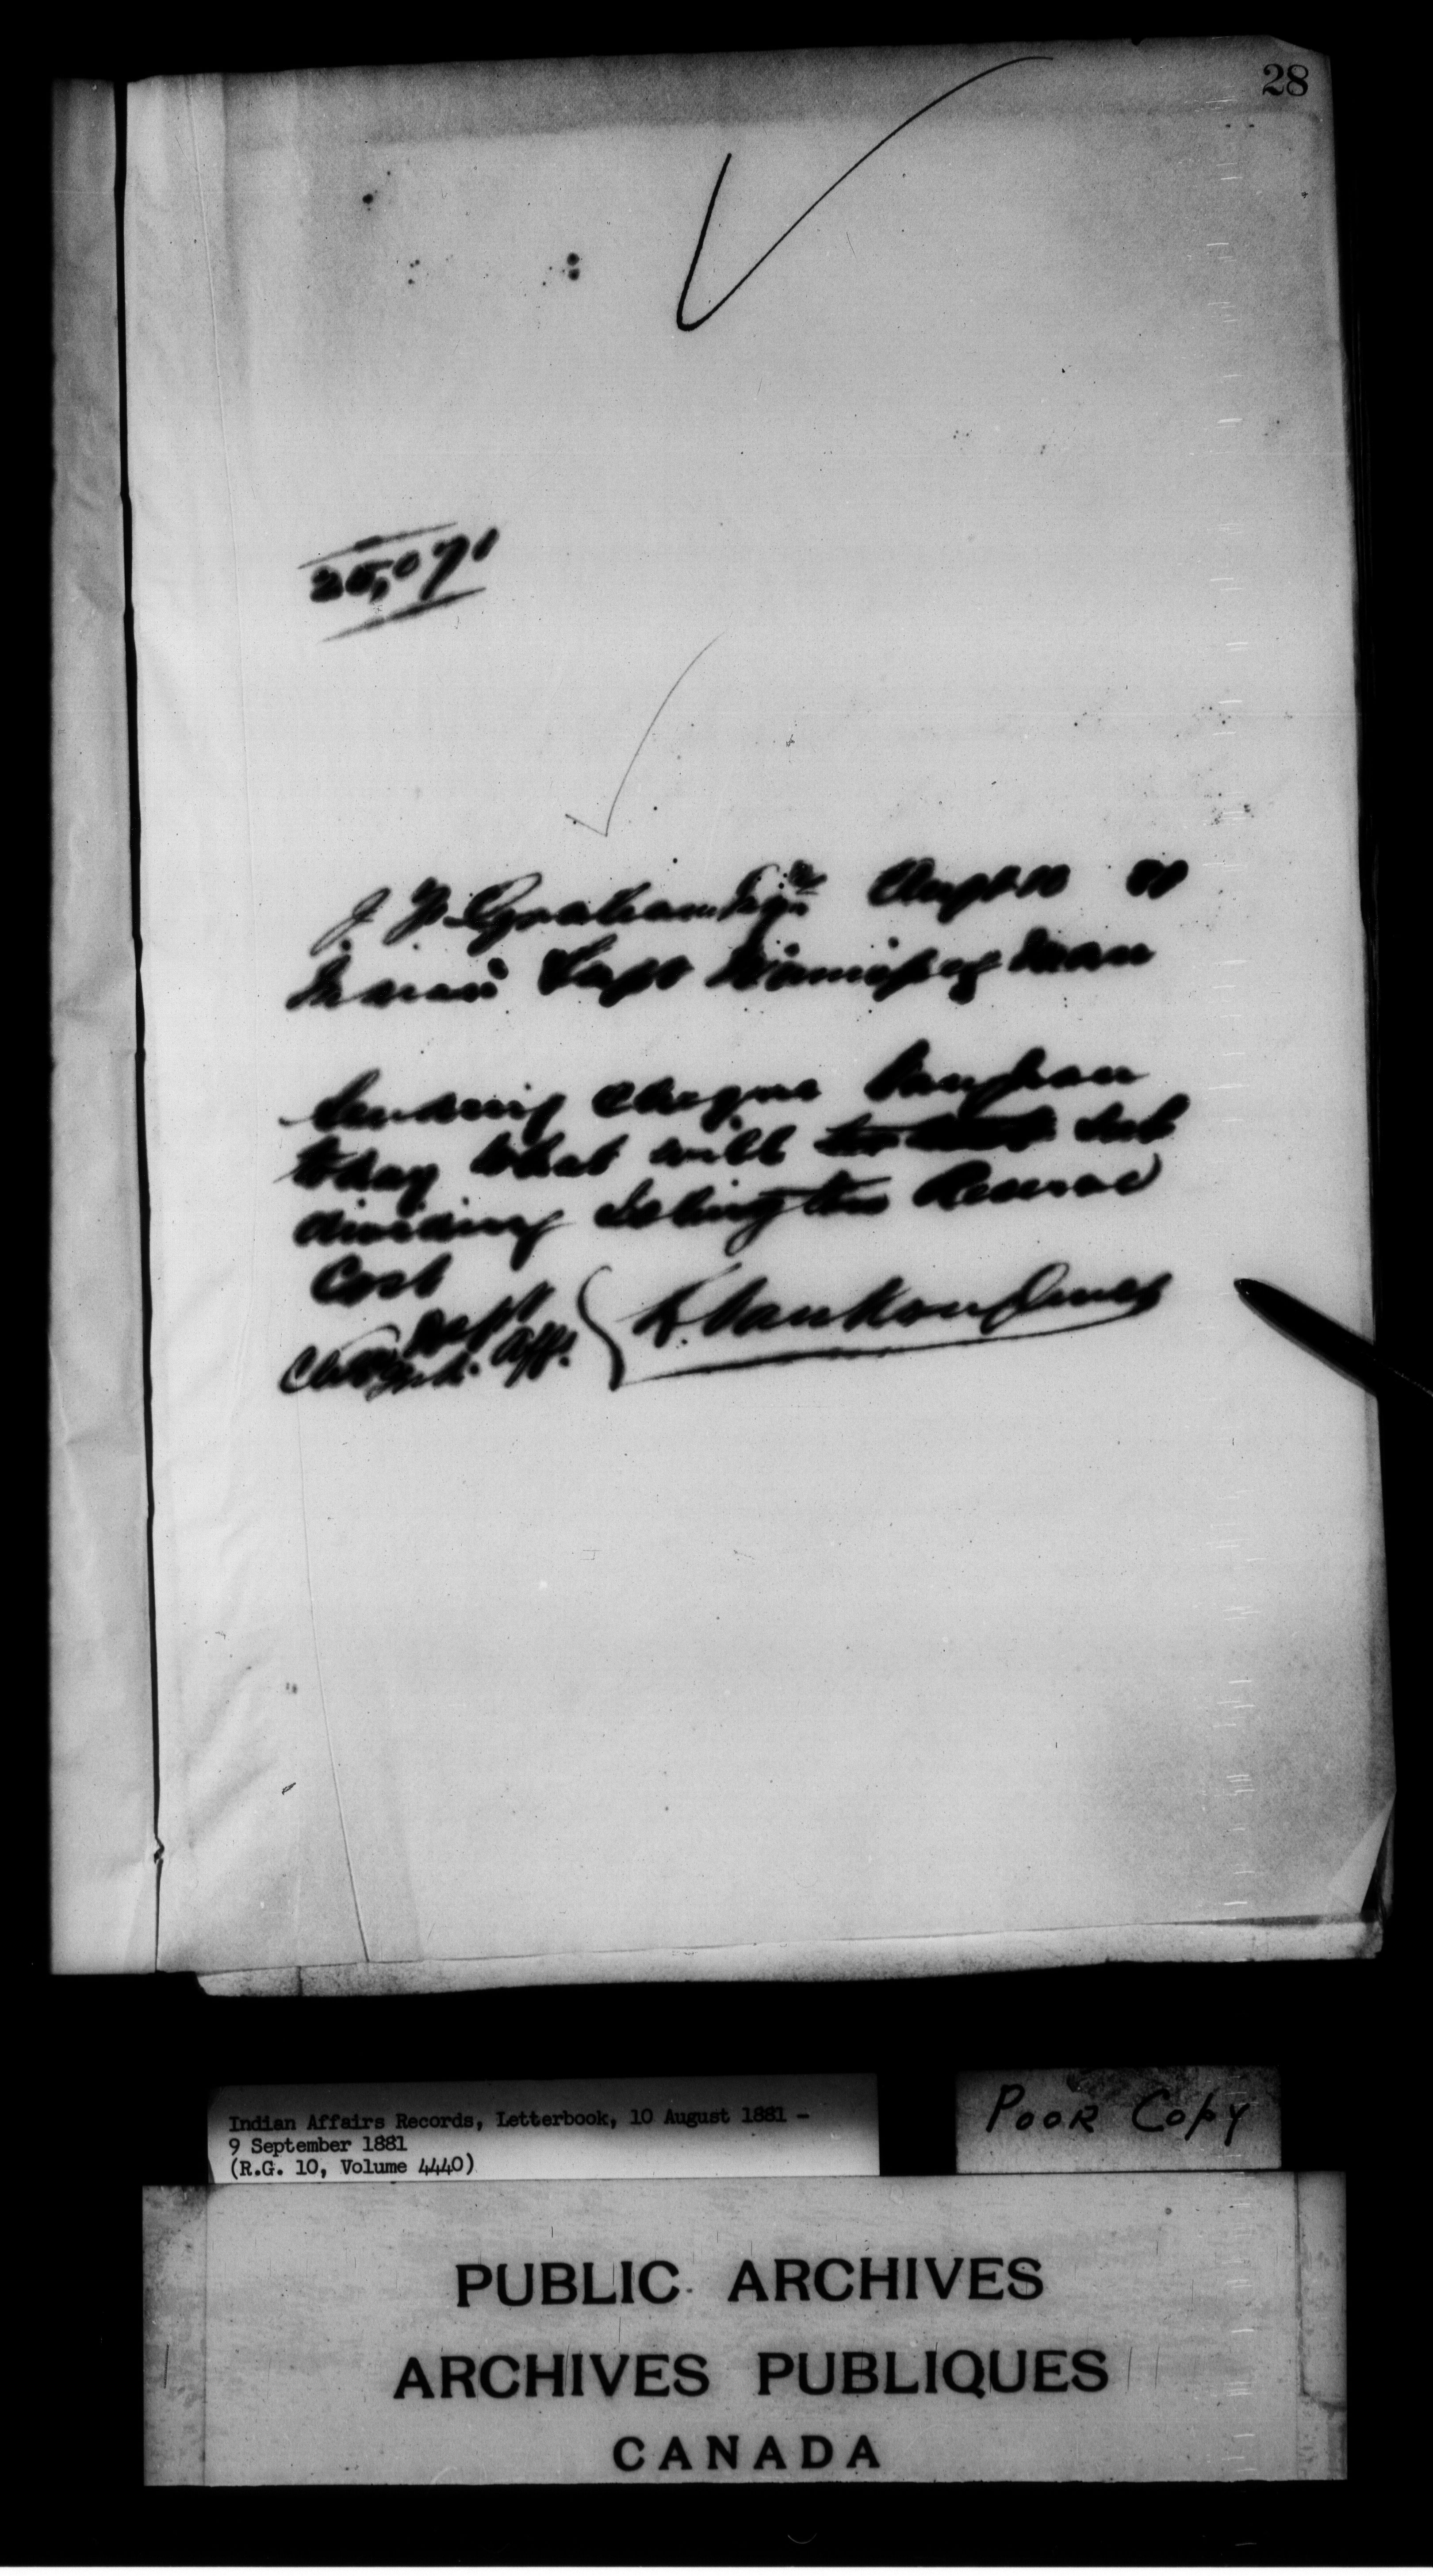 28
25,071
J. F. Graham Esqre Augt 10 81
Indian Supt Winnipeg Man
Sending cheque Vaughan
today What will sub
dividing Islington Reserve
Cost
Dept
Chg Ind. Aff. L. Vankoughnet
Indian Affairs Records, Letterbook, 10 August 1881 –
9 September 1881
(R.G. 10, Volume 4440)
Poor Copy
PUBLIC ARCHIVES
ARCHIVES PUBLIQUES
CANADA